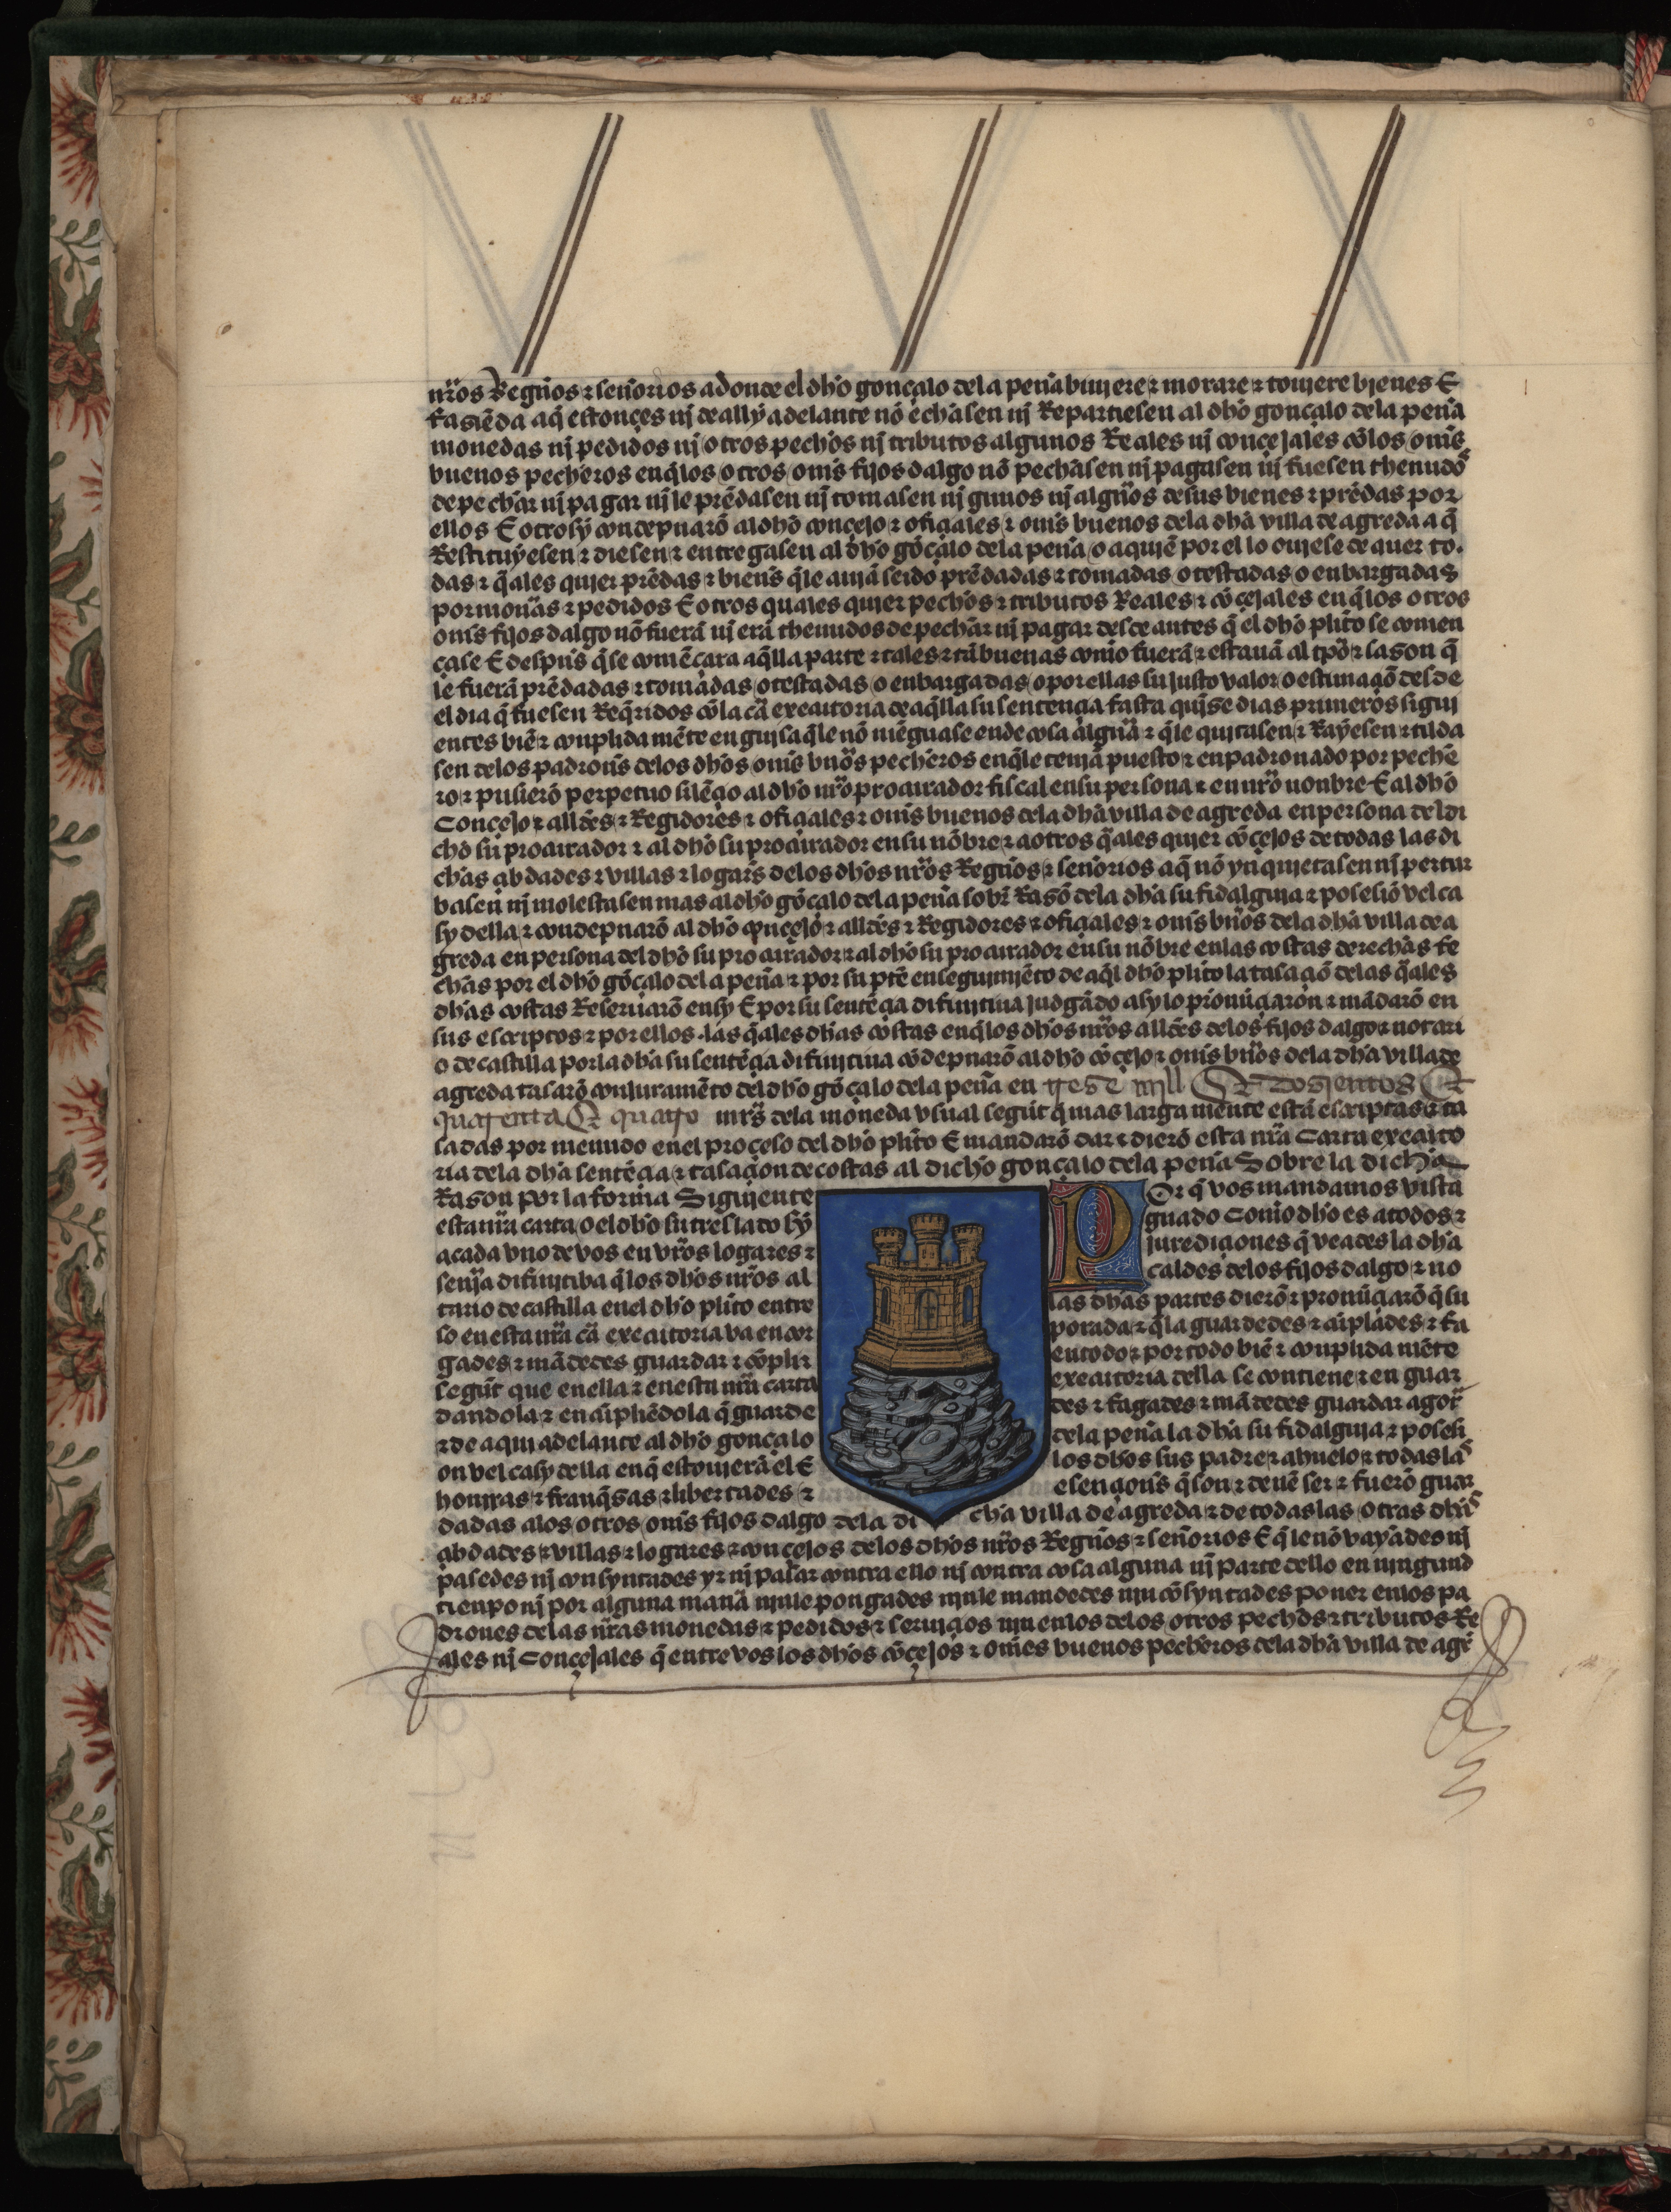 nr̃os Regños ⁊ señorios adonde el dho gonçalo dela peña biujere ⁊ morare ⁊ toujere bienes E
fasiẽda aq̃ estonçes nj de ally adelante nõ echasen nj Repartiesen al dho gonçalo dela peña
monedas nj pedidos nj otros pechos nj tributos algunos Reales nj conçejales cõ los om̃s
buenos pecheros en q̃ los otros om̃s fijos dalgo nõ pechasen nj pagasen nj fuesen thenudos
de pechar nj pagar nj le prẽdasen nj tomasen njgunos nj algũos de sus bienes ⁊ prẽdas por
ellos E otrosy condepnarõ al dho conçejo ⁊ ofiçiales ⁊ om̃s buenos dela dha villa de agreda a q̃
Restituyesen ⁊ diesen ⁊ entregasen al dho gõçalo dela peña o a qujẽ por el lo oujese de auer to
das ⁊ q̃ales qujer prẽdas ⁊ bien̾s q̃ le aujã seido prẽdadas ⁊ tomadas o testadas o enbargadas
por mon̾as ⁊ pedidos E otros quales qujer pechos ⁊ tributos Reales ⁊ cõçejales en q̃ los otros
om̃s fijos dalgo nõ fuerã nj erã thenudos de pechar nj pagar desde antes q̃ el dho plito se comen
çase E despũs q̃ se comẽçara aq̃lla parte ⁊ tales ⁊ tã buenas como fuerã ⁊ estauã al tp̃o ⁊ sason q̃
le fuerã prẽdadas ⁊ tomadas o testadas o enbargadas o por ellas su justo valor o estimaçiõ desde
el dia q̃ fuesen Req̃ridos cõ la cã executoria de aq̃lla su sentençia fasta qujnse dias primeros sigui
entes biẽ ⁊ conplida mẽte en gujsa q̃ le nõ mẽguase ende cosa algũa ⁊ q̃ le quitasen ⁊ Rayesen ⁊ tilda
sen delos padron̾s delos dhos om̃s bũos pecheros en q̃ le tenjã puesto ⁊ enpadronado por peche
ro ⁊ pusierõ perpetuo silẽçio al dho nr̃o procurador fiscal en su persona ⁊ en nr̃o nonbre E al dho
Conçejo ⁊ allđes ⁊ Regidores ⁊ ofiçiales ⁊ om̃s buenos dela dha villa de agreda en persona del di
cho su procurador ⁊ al dho su procurador en su nõbre ⁊ a otros q̃ales qujer cõçejos de todas las di
chas çibdades ⁊ villas ⁊ logar̃s delos dhos nr̃os Regños ⁊ señorios a q̃ nõ ynqujetasen nj pertur
basen nj molestasen mas al dho gõçalo dela peña sobr̃ Rasõ dela dha su fidalguja ⁊ posesiõ vel ca
sy della ⁊ condepnarõ al dho conçejo ⁊ allđes ⁊ Regidores ⁊ ofiçiales ⁊ om̃s bũos dela dha villa de a
greda en persona del dho su procurador ⁊ al dho su procurador en su nõbre en las costas derechas fe
chas por el dho gõçalo dela peña ⁊ por su pt̃e en seguimjẽto de aq̃l dho plito la tasaçiõ delas q̃ales
dhas costas Reseruarõ en sy E por su sentẽçia difinjtiua judgãdo asy lo pronũçiaron ⁊ mãdarõ en
sus escriptos ⁊ por ellos las q̃ales dhas costas en q̃ los dhos nr̃os allđes delos fijos dalgo ⁊ notari
o de castilla por la dha su sentẽçia difinjtiua cõdepnarõ al dho cõçejo ⁊ om̃s bũos dela dha villa de
agreda tasarõ con juramẽto del dho gõçalo dela peña en trese mjll E dosientos E
quarenta E quatro mr̃s dela moneda vsual segũt q̃ mas larga mẽnte estã escriptas ⁊ ta
sadas por menudo en el proçeso del dho plito E mandarõ dar ⁊ dierõ esta nr̃a Carta executo
ria dela dha sentẽçia ⁊ tasaçion de costas al dicho gonçalo dela peña Sobre la dicha
Rason por la forma Sigujente Por q̃ vos mandamos vista
esta nr̃a carta o el dho su treslado sy guado Como dho es a todos ⁊
a cada vno de vos en vr̃os logares ⁊ jurediçiones q̃ veades la dha
senj̃a difinjtiba q̃ los dhos nr̃os al caldes delos fijos dalgo ⁊ no
tario de castilla en el dho plito entre las dhas partes dierõ ⁊ pronũçiarõ q̃ su
so en esta nr̃a cã executoria va encor porada ⁊ q̃ la guardedes ⁊ cũplades ⁊ fa
gades ⁊ mãdedes guardar ⁊ cõplir en todo ⁊ por todo biẽ ⁊ conplida mẽte
segũt que en ella ⁊ en esta nr̃a carta executoria della se contiene ⁊ en guar
dandola ⁊ en cũpliẽdola q̃ guarde des ⁊ fagades ⁊ mãdedes guardar agor̃
⁊ de aqui adelante al dho gonçalo dela peña la dha su fidalguja ⁊ posesi
on vel casy della en q̃ estoujerã el E los dhos sus padre ⁊ ahuelo ⁊ todas las
honrras ⁊ franq̃sas ⁊ libertades ⁊ esençion̾s q̃ son ⁊ deuẽ ser ⁊ fuerõ guar
dadas a los otros om̃s fijos dalgo dela di cha villa de agreda ⁊ de todas las otras dhas
çibdades ⁊ villas ⁊ logares ⁊ conçejos delos dhos nr̃os Regños ⁊ señorios E q̃ le nõ vayades nj
pasedes nj consyntades yr nj pasar contra ello nj contra cosa alguna nj parte dello en njngund
tienpo nj por alguna manã njn le pongades njn le mandedes njn cõsyntades poner en los pa
drones delas nr̃as monedas ⁊ pedidos ⁊ serujçios njn en los delos otros pechos ⁊ tributos Re
ales nj Conçejales q̃ entre vos los dhos cõçejos ⁊ omẽs buenos pecheros dela dha villa de agr̃